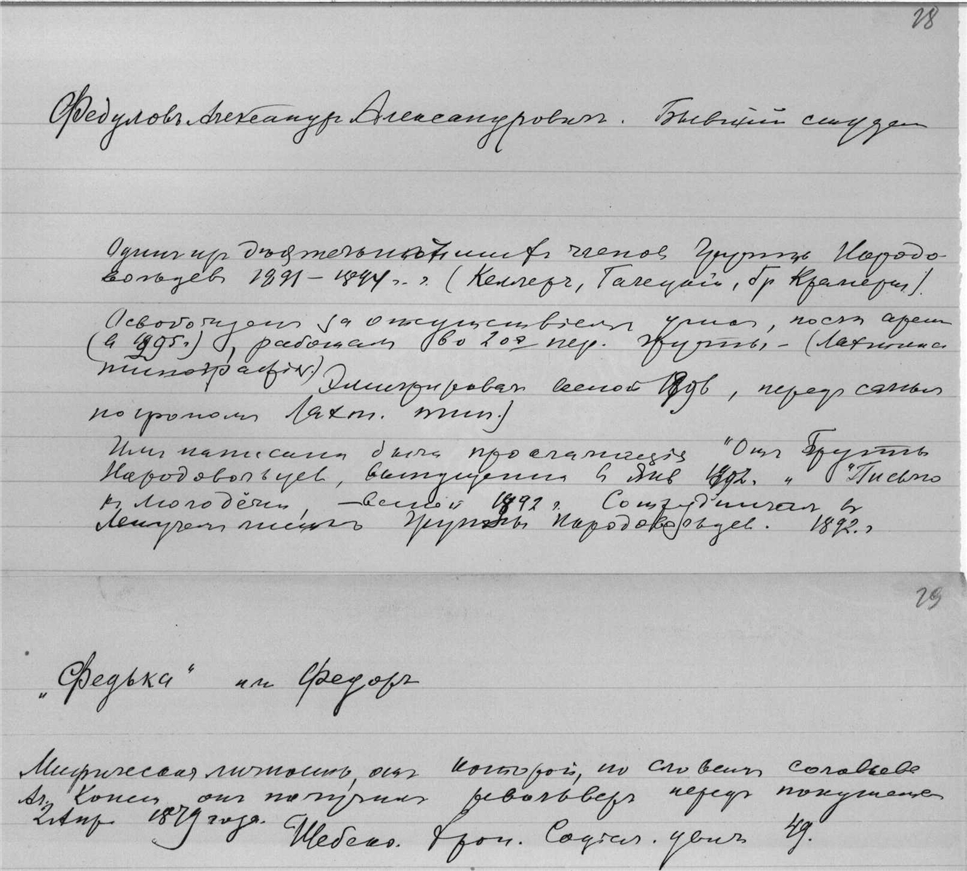 28
Федуловъ Александръ Александровичъ. Бывшій студен
Один из деятельнейших членов Группы Народо-
вольцев 1891–1894 г.г. (Келлеръ, Галецкій, бр. Крамеры).
Освобожден за отсутствіем улик, после арест
(в 1895 г.), работал во 2ой пер. группы – (Лахтинск
типографія.) Эмигрировал весной 1896, передъ самым
погромом Лахт. тип.)
Им написана была прокламація "От Группы
Народовольцев, выпущенная в Янв 1892. „ "Письмо
к молодёжи, – весной 1892 г. Сотрудничал в
Летучем листкѣ Группы Народовольцев. 1892 г.
29
„Федька“ или Федоръ
Мифическая личность, от которой, по словам Соловьева
Ал. Конст. он получил револьверъ передъ покушением
2 Апр. 1879 года.
Шебеко. Хрон. Соціал. движ 49.